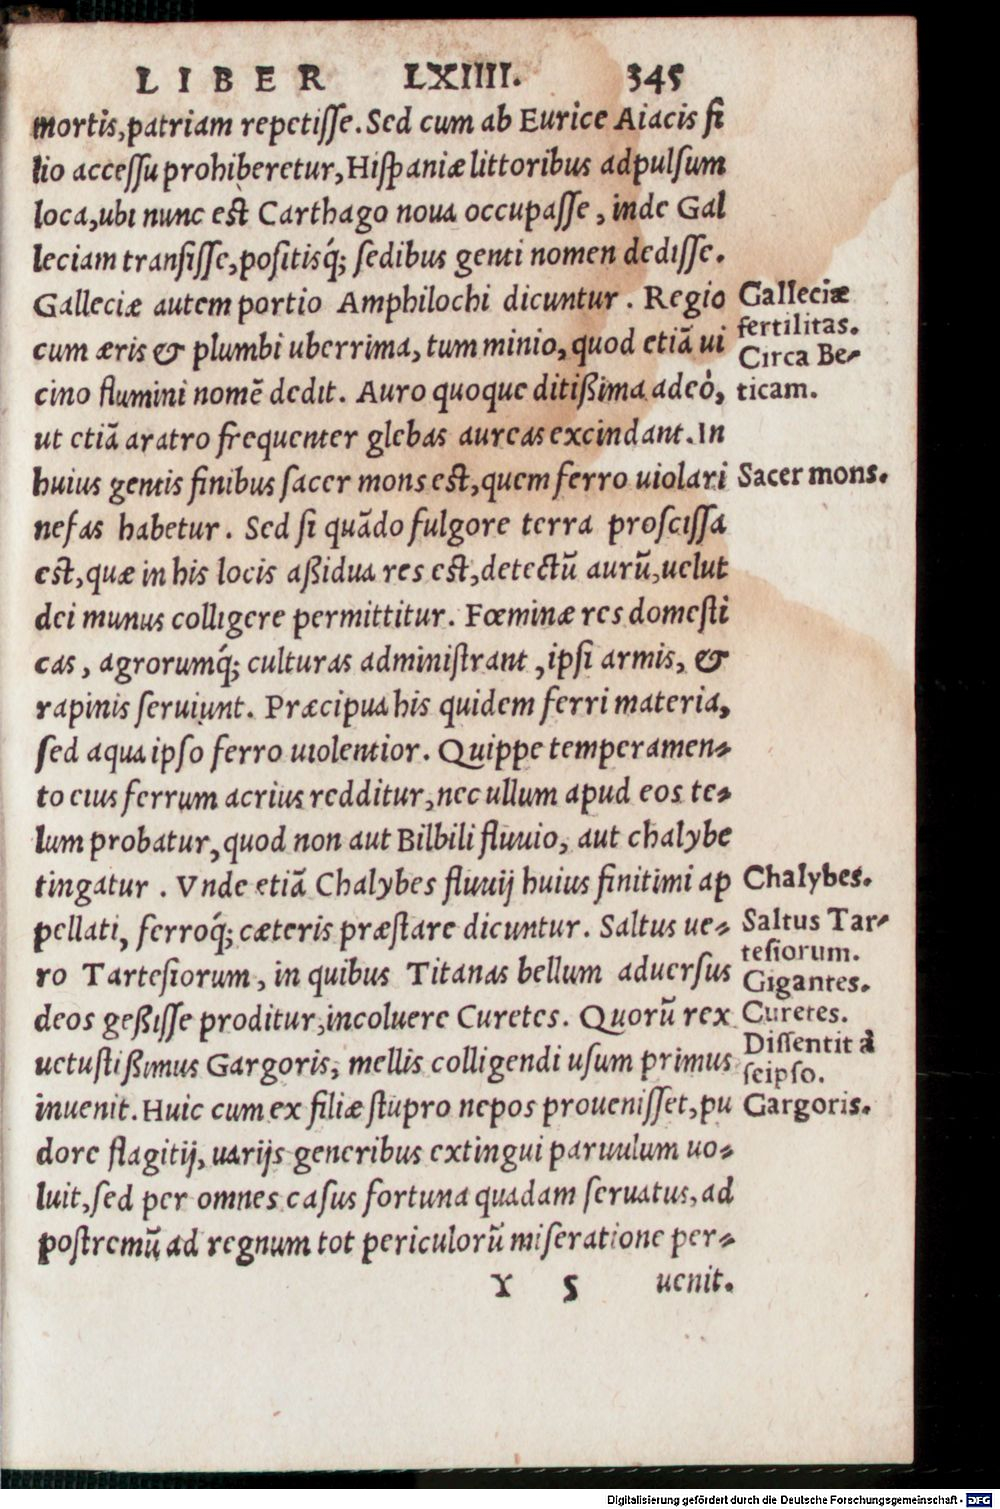 LIBER LXIIII. 345
mortis, patriam repetiſſe. Sed cum ab Eurice Aiacis fi
lio acceſſu prohiberetur, Hiſpaniæ littoribus adpulſum
loca, ubi nunc eſt Carthago noua occupaſſe, inde Gal
leciam tranſiſſe, poſitisq́; ſedibus genti nomen dediſſe.
Galleciæ autem portio Amphilochi dicuntur. Regio
cum æris & plumbi uberrima, tum minio, quod etiā ui
cino flumini nomē dedit. Auro quoque ditißima adeò,
ut etiā aratro frequenter glebas aureas excindant. In
huius gentis finibus ſacer mons eſt, quem ferro uiolari
nefas habetur. Sed ſi quādo fulgore terra proſciſſa
eſt, quæ in his locis aßidua res eſt, detectū aurū, uelut
dei munus colligere permittitur. Fœminæ res domeſti
cas, agrorumq́; culturas adminiſtrant, ipſi armis, &
rapinis ſeruiunt. Præcipua his quidem ferri materia,
ſed aqua ipſo ferro uiolentior. Quippe temperamen-
to eius ferrum acrius redditur, nec ullum apud eos te-
lum probatur, quod non aut Bilbili fluuio, aut chalybe
tingatur. Vnde etiā Chalybes fluuij huius finitimi ap
pellati, ferroq́; cæteris præſtare dicuntur. Saltus ue-
ro Tarteſiorum, in quibus Titanas bellum aduerſus
deos geßiſſe proditur, incoluere Curetes. Quorū rex
uetuſtißimus Gargoris, mellis colligendi uſum primus
inuenit. Huic cum ex filiæ ſtupro nepos proueniſſet, pu
dore flagitij, uarijs generibus extingui paruulum uo-
luit, ſed per omnes caſus fortuna quadam ſeruatus, ad
poſtremū ad regnum tot periculorū miſeratione per-
Y 5 uenit.
Galleciæ
fertilitas.
Circa Be-
ticam.
Sacer mons.
Chalybes.
Saltus Tar-
teſiorum.
Gigantes.
Curetes.
Diſſentit à
ſeipſo.
Gargoris.
Digitalisierung gefördert durch die Deutsche Forschungsgemeinschaft - DFG